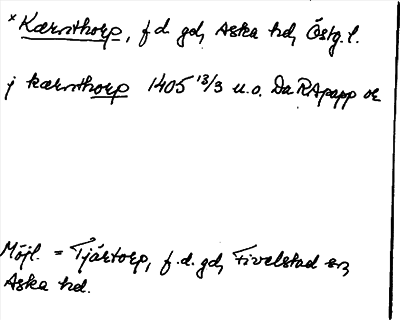 × Kærnthorp, f.d. gd, Aska hd, Östg.l.
j kærnthorp 1405 13/3 u.o. Da RApapp or
Möjl. = Tjärtorp, f.d. gd, Fivelstad sn,
Aska hd.